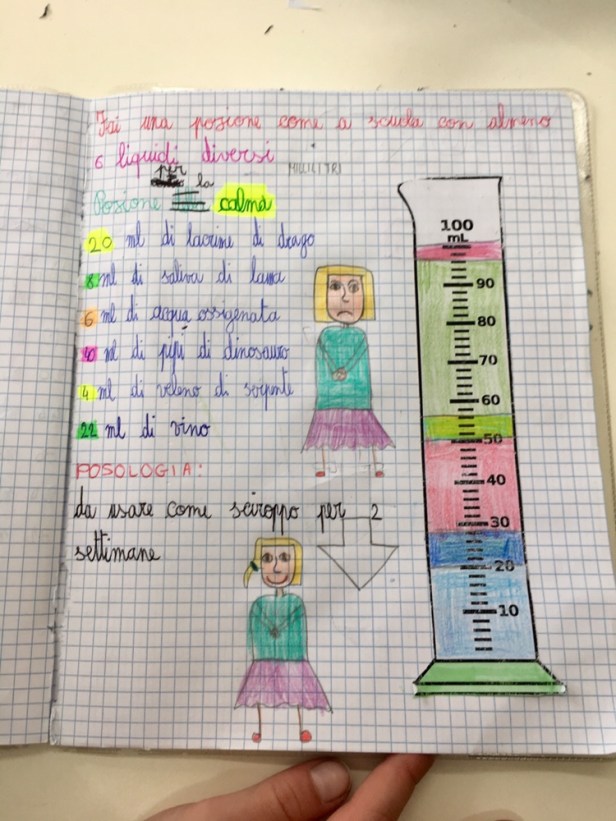 Fai una pozione come a scuola con almeno
6 liquidi diversi
MILLILITRI
Pozione per la calma
20 ml di lacrime di drago
8 ml di saliva di lama
6 ml di acqua ossigenata
40 ml di pipì di dinosauro
4 ml di veleno di serpente
22 ml di vino
POSOLOGIA:
da usare come sciroppo per 2
settimane
100
mL
90
80
70
60
50
40
30
20
10